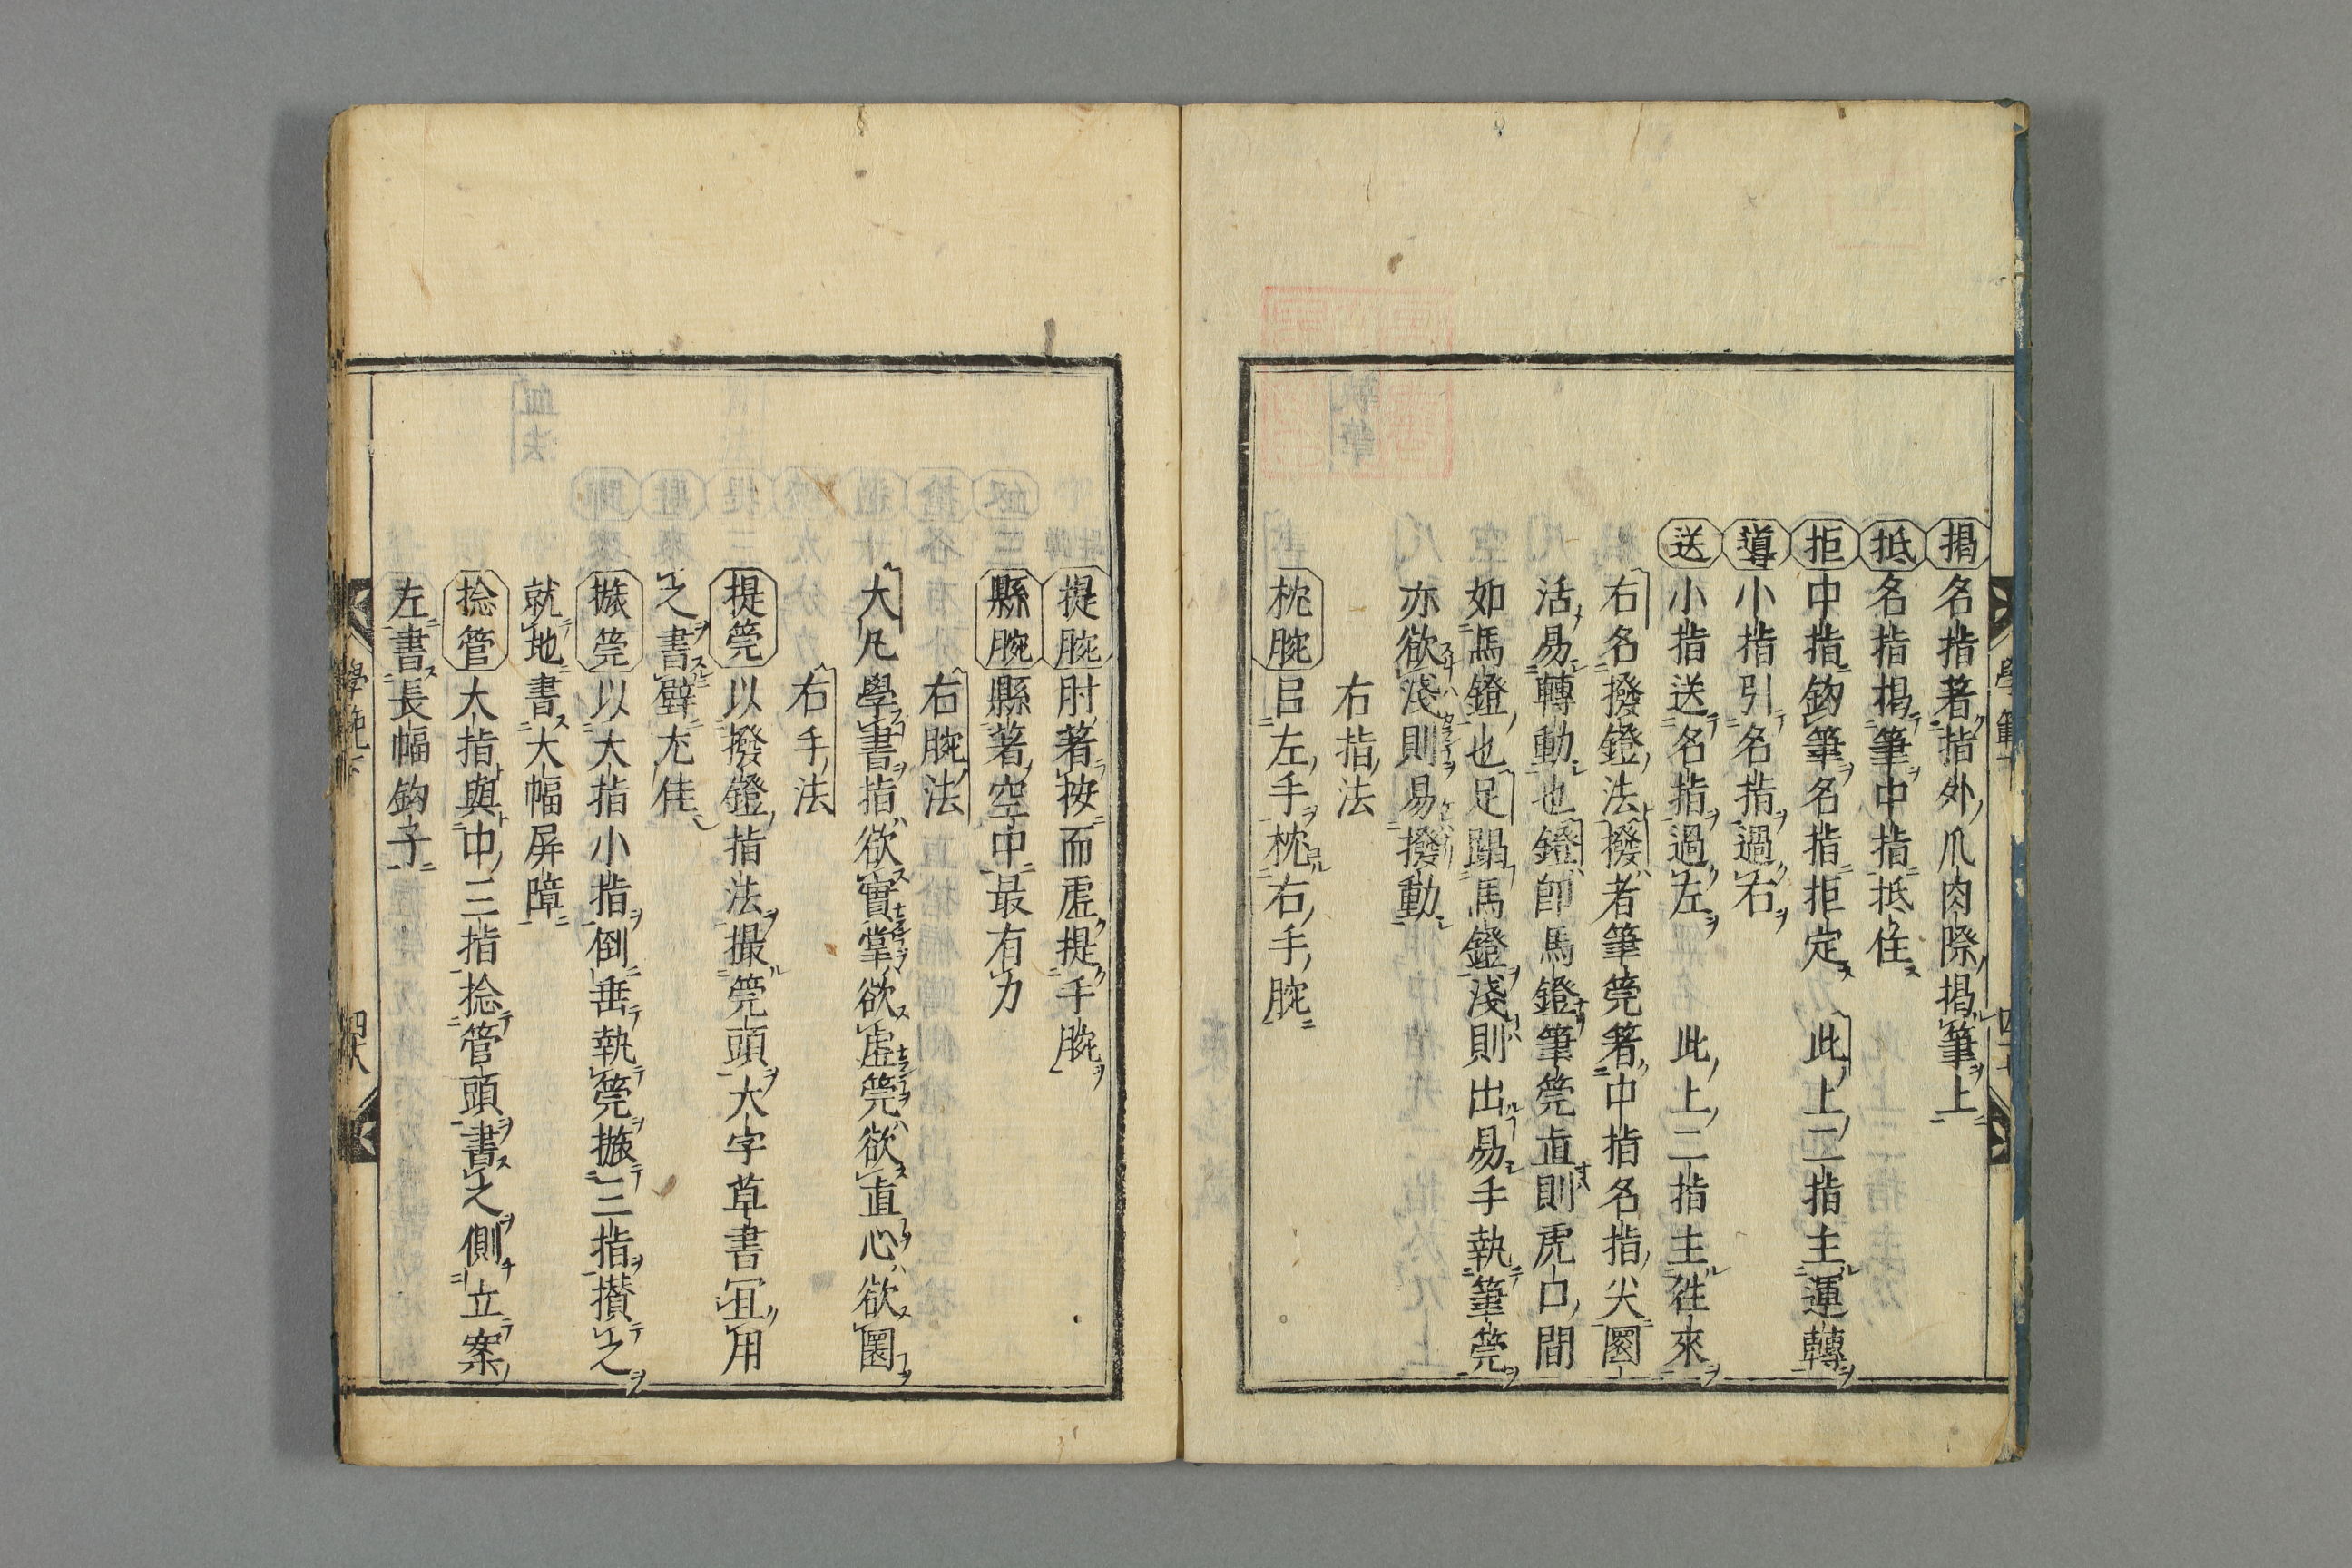 揭名指著指外爪肉際揭筆上
抵名指揭筆中指抵住
拒中指鈎筆名指拒定 此上二指主運轉
導小指引名指過右
送小指送名指過左 此上二指主往來
右名撥鐙法撥者筆筦著中指名指尖圓
活易轉動也鐙即馬鐙筆筦直則虎口間
如馬鐙也足蹋馬鐙淺則出易手執筆筦
亦欲淺則易撥動
右指法
枕腕㠯左手枕右手腕
提腕肘著按而虛提手腕
懸腕懸著空中最有力
右腕法
大凡學書指欲實掌欲虛筦欲直心欲圓
右手法
提筦以撥鐙指法撮筦頭大字草書宜用
之書壁尤佳
撅筦以大指小指倒垂執筦撅三指攢之
就地書大幅屏障
捻管大指與中三指捻管頭書之側立案
左書長幅鈎子